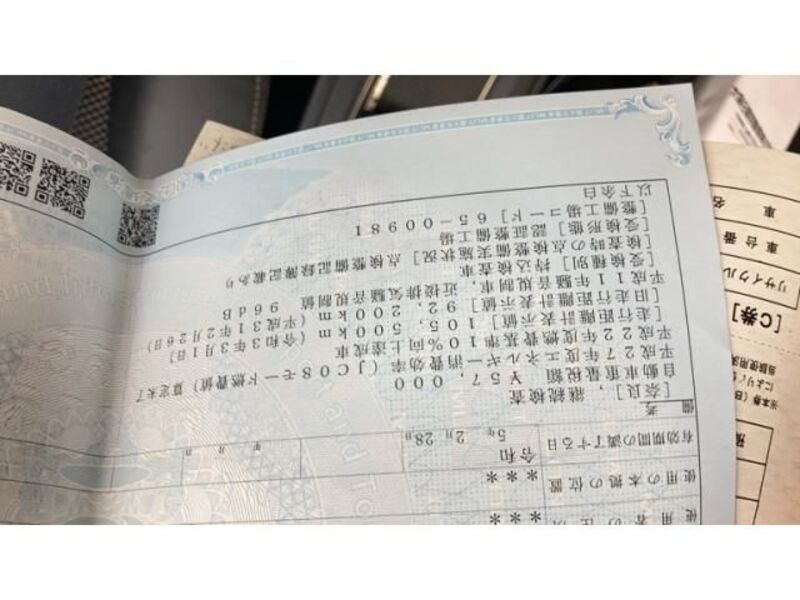 使用の本拠の位置 ***
有効期間の満了する日 令和 5年 2月28日 年 月 日
備考
[奈良], 継続検査
自動車重量税額 ¥57,000
平成27年度エネルギー消費効率(JC08モード燃費値)算定未了
平成22年度燃費基準10%向上達成車
[走行距離計表示値] 105,500km (令和3年3月1日)
[旧走行距離計表示値] 92,200km (平成31年2月26日)
平成11年騒音規制車, 近接排気騒音規制値 96dB
[受検種別] 持込検査車
[検査時の点検整備実施状況] 点検整備記録簿記載あり
[受検形態] 認証整備工場
[整備工場コード] 65-00981
以下余白
[C券]
リサイクル
車台番
車名